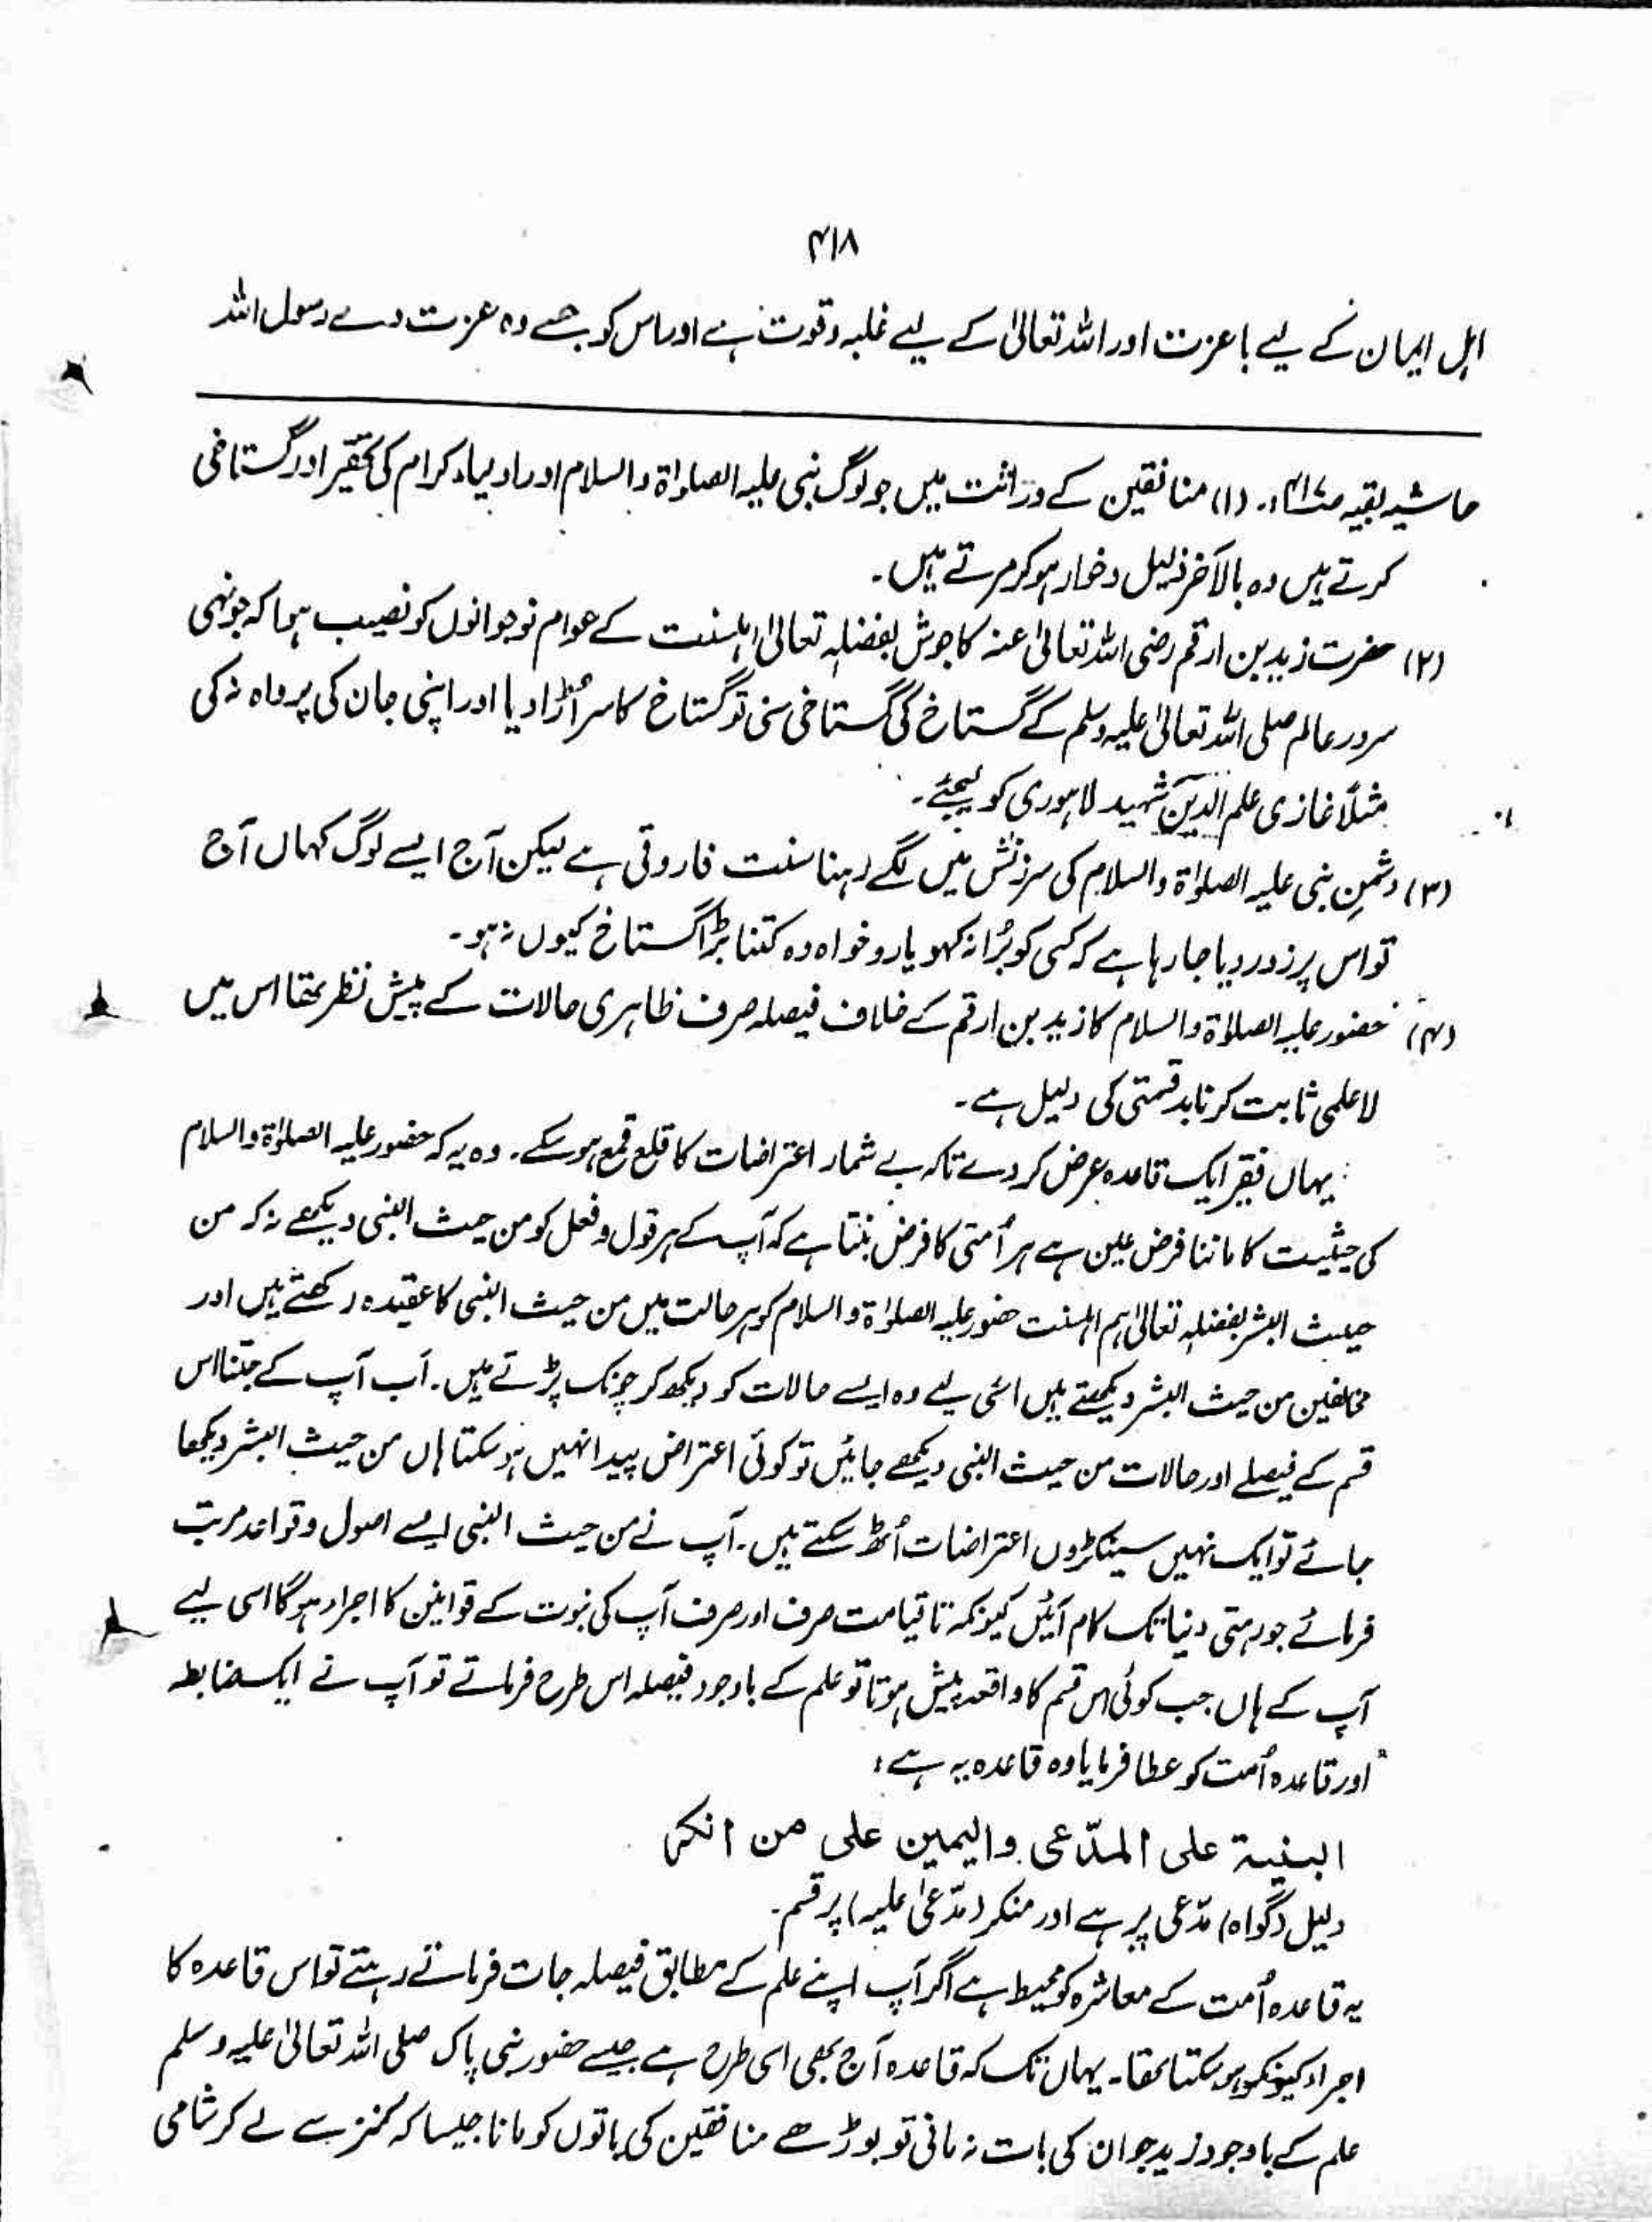 ۴۱۸
اہل ایمان کے لیے باعزت اور اللہ تعالیٰ کے لیے غلبہ و قوت ہے اور اس کو جسے وہ عزت دے رسول اللہ
حاشیہ بقیہ ص۴۱۷:۔ (۱) منافقین کے وراثت میں جو لوگ نبی علیہ الصلوٰۃ والسلام اور اولیاء کرام کی تحقیر اور گستاخی
کرتے ہیں وہ بالآخر ذلیل و خوار ہو کر مرتے ہیں۔
(۲) حضرت زید بن ارقم رضی اللہ تعالیٰ عنہ کا جوش بفضلہ تعالیٰ اہلسنت کے عوام نوجوانوں کو نصیب ہوا کہ جونہی
سرور عالم صلی اللہ تعالیٰ علیہ وسلم کے گستاخ کی گستاخی سنی تو گستاخ کا سر اُڑا دیا اور اپنی جان کی پرواہ نہ کی
مثلاً غازی علم الدین شہید لاہوری کو لیجئے۔
(۳) دشمنِ نبی علیہ الصلوٰۃ والسلام کی سرزنش میں لگے رہنا سنت فاروقی ہے لیکن آج ایسے لوگ کہاں آج
تو اس پر زور دیا جا رہا ہے کہ کسی کو بُرا نہ کہو یارو خواہ وہ کتنا بڑا گستاخ کیوں نہ ہو۔
(۴) حضور علیہ الصلوٰۃ والسلام کا زید بن ارقم کے خلاف فیصلہ صرف ظاہری حالات کے پیش نظر تھا اس میں
لاعلمی ثابت کرنا بدقسمتی کی دلیل ہے۔
یہاں فقیر ایک قاعدہ عرض کر دے تاکہ بے شمار اعتراضات کا قلع قمع ہو سکے۔ وہ یہ کہ حضور علیہ الصلوٰۃ والسلام
کی حیثیت کا ماننا فرض عین ہے ہر اُمتی کا فرض بنتا ہے کہ آپ کے ہر قول و فعل کو من حیث النبی دیکھے نہ کہ من
حیث البشر بفضلہ تعالیٰ ہم اہلسنت حضور علیہ الصلوٰۃ والسلام کو ہر حالت میں من حیث النبی کا عقیدہ رکھتے ہیں اور
مخالفین من حیث البشر دیکھتے ہیں اسی لیے وہ ایسے حالات کو دیکھ کر چونک پڑتے ہیں۔ اب آپ کے جتنا اس
قسم کے فیصلے اور حالات من حیث النبی دیکھے جائیں تو کوئی اعتراض پیدا نہیں ہو سکتا ہاں من حیث البشر دیکھا
جائے تو ایک نہیں سینکڑوں اعتراضات اُٹھ سکتے ہیں۔ آپ نے من حیث النبی ایسے اصول و قواعد مرتب
فرمائے جو رہتی دنیا تک کام آئیں کیونکہ تا قیامت صرف اور صرف آپ کی نبوت کے قوانین کا اجراء ہو گا اسی لیے
آپ کے ہاں جب کوئی اس قسم کا واقعہ پیش ہوتا تو علم کے باوجود فیصلہ اس طرح فرماتے تو آپ نے ایک ضابطہ
اور قاعدہ اُمت کو عطا فرمایا وہ قاعدہ یہ ہے:
البنیۃ علی المدّعی والیمین علی من انکر
دلیل (گواہ) مدّعی پر ہے اور منکر (مدّعیٰ علیہ) پر قسم۔
یہ قاعدہ اُمت کے معاشرہ کو محیط ہے اگر آپ اپنے علم کے مطابق فیصلہ جات فرماتے رہتے تو اس قاعدہ کا
اجراء کیونکر ہو سکتا تھا۔ یہاں تک کہ قاعدہ آج بھی اسی طرح ہے جیسے حضور نبی پاک صلی اللہ تعالیٰ علیہ وسلم
علم کے باوجود زید جوان کی بات نہ مانی تو بوڑھے منافقین کی باتوں کو مانا جیسا کہ کنز سے لے کر شامی